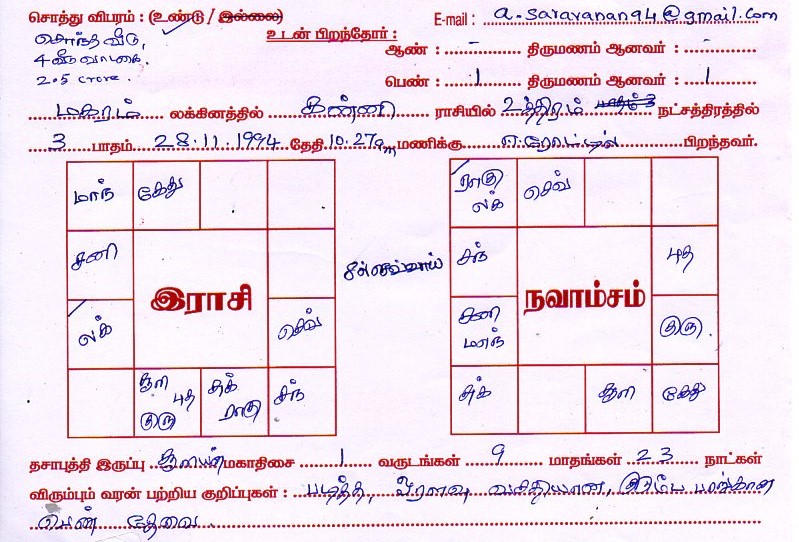 சொத்து விபரம் : (உண்டு / இல்லை)
E-mail : a.saravanan94@gmail.com
சொந்த வீடு,
4 வீடு வாடகை
2.5 crore.
உடன் பிறந்தோர் :
ஆண் : - திருமணம் ஆனவர் : -
பெண் : 1 திருமணம் ஆனவர் : 1
மகரம் லக்கினத்தில் கன்னி ராசியில் உத்திரம் பாதம் 3 நட்சத்திரத்தில்
3 பாதம் 28.11.1994 தேதி 10.27 am மணிக்கு ஈரோட்டில் பிறந்தவர்.
மாந் கேது
சனி
லக் செவ்
சூரி புத குரு சுக் ராகு சந்
இராசி
செவ்வாய்
ராகு லக் செவ்
சந் புத
சனி மாந் குரு
சுக் சூரி கேது
நவாம்சம்
தசாபுத்தி இருப்பு சூரியன் மகாதிசை 1 வருடங்கள் 9 மாதங்கள் 23 நாட்கள்
விரும்பும் வரன் பற்றிய குறிப்புகள் : படித்த, ஓரளவு வசதியான, குடும்ப பாங்கான
பெண் தேவை.